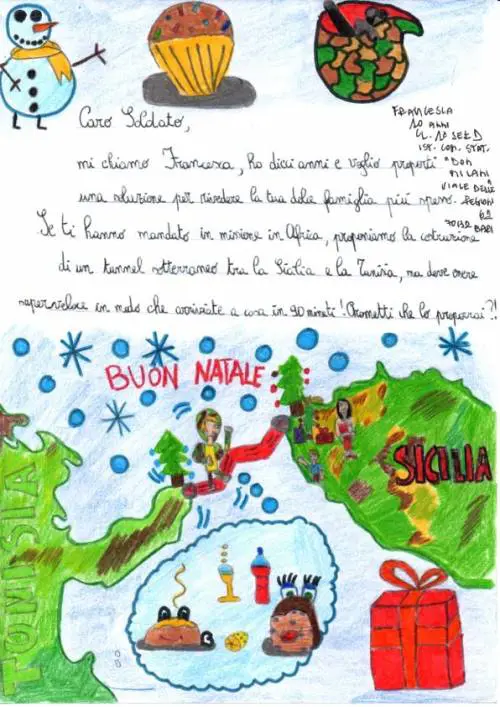 Caro Soldato,
FRANCESCA
10 ANNI
CL. 1° SEZ D
IST. COM. STAT.
"DON
MILANI"
VIALE DELLE
REGIONI
62
70132 BARI
mi chiamo Francesca, ho dieci anni e voglio proporti
una soluzione per rivedere la tua dolce famiglia più spesso.
Se ti hanno mandato in missione in Africa, proponiamo la costruzione
di un tunnel sotterraneo tra la Sicilia e la Tunisia, ma deve essere
superveloce in modo che arriviate a casa in 90 minuti! Prometti che lo proporrai?!
BUON NATALE
SICILIA
TUNISIA